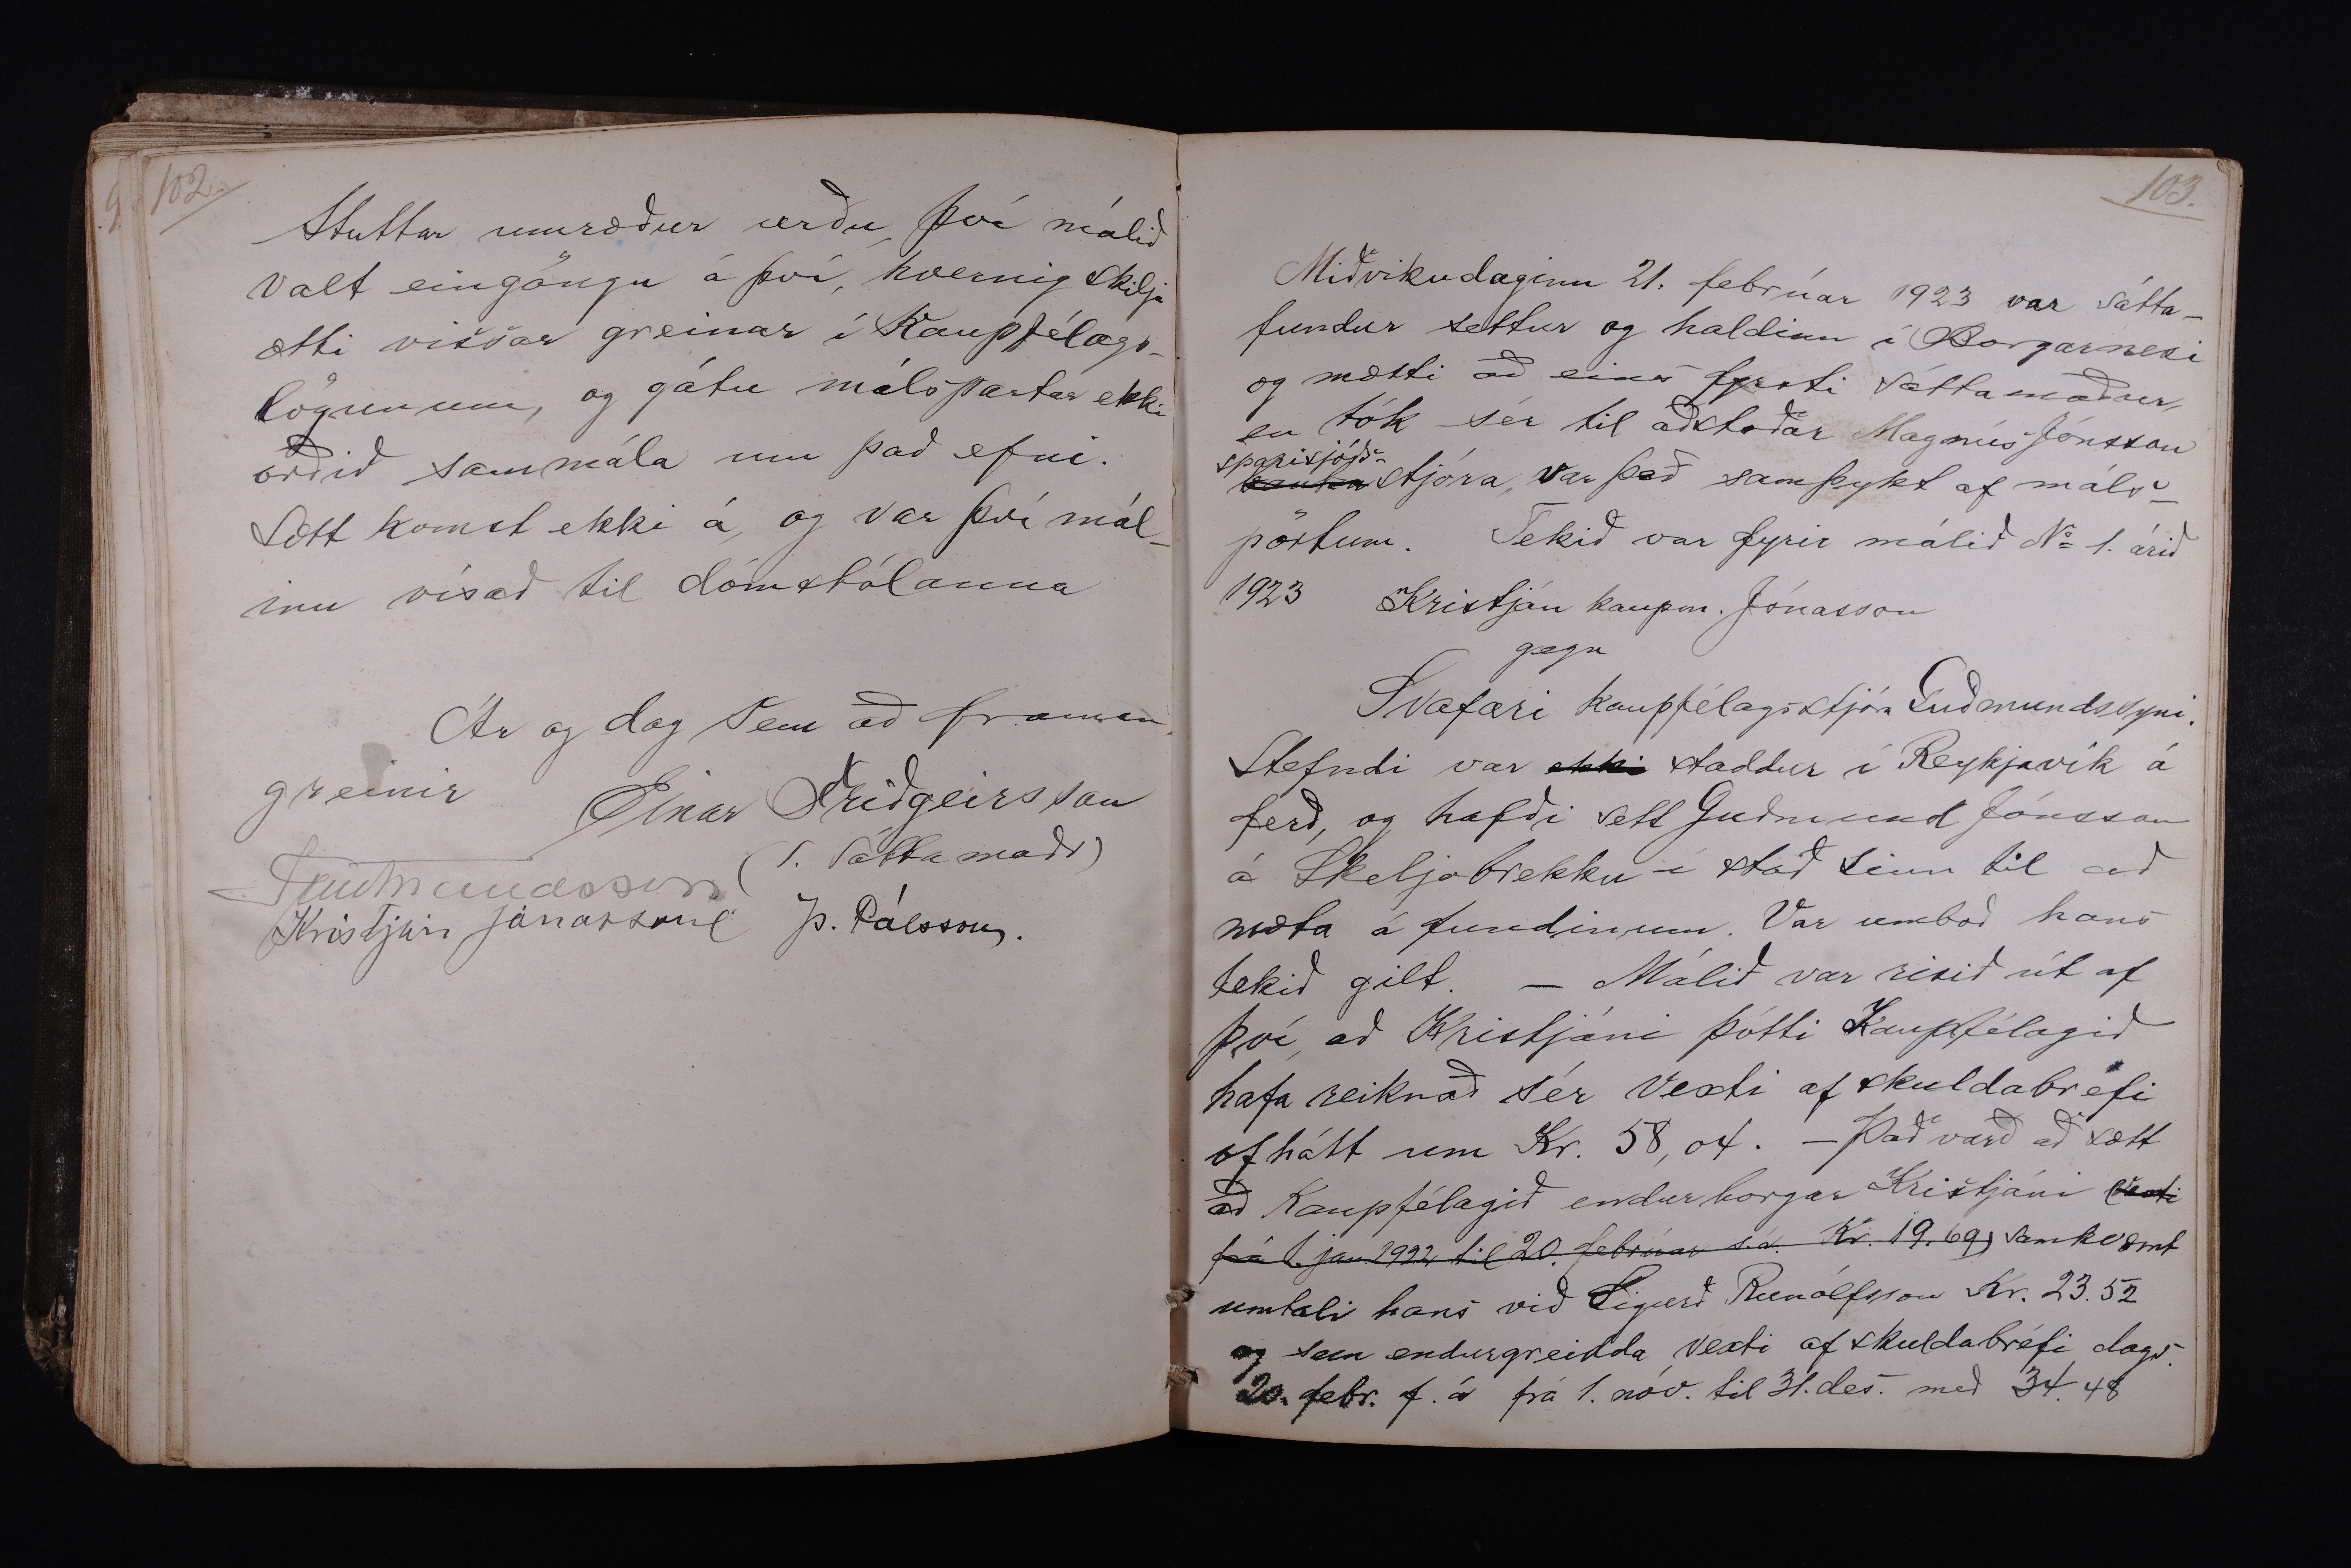 102.
Stuttar umræður urðu, því málið
valt eingöngu á því, hvernig skilja
ætti vissar greinar í Kaupfélags-
lögunum, og gátu málspartar ekki
orðið sammála um það efni.
Sætt komst ekki á, og var því mál-
inu vísað til dómstólanna
Ár og dag sem að framan
greinir Einar Friðgeirsson
(1. sáttamaðr)
Guðmundsson
Kristján Jónasson þ. Pálsson.
103.
Miðvikudaginn 21. febrúar 1923 var sátta-
fundur settur og haldinn í Borgarnesi
og mætti að eins fyrsti sáttamaður,
en tók sér til aðstoðar Magnús Jónsson
sparisjóðs-
banka stjóra, var það samþykt af máls-
pörtum. Tekið var fyrir málið No 1. árið
1923 Kristján kaupm. Jónasson
gegn
Svafari kaupfélagsstjóra Guðmundssyni.
Stefndi var ekki staddur í Reykjavík á
ferð, og hafði sett Guðmund Jónsson
á Skeljabrekku í stað sinn til að
mæta á fundinum. Var umboð hans
tekið gilt. – Málið var risið út af
því, að Kristjáni þótti Kaupfélagið
hafa reiknað sér vexti af skuldabréfi
of hátt um Kr. 58,04. – Það varð að sætt
að Kaupfélagið endurborgar Kristjáni (vexti
frá 1. jan 1922 til 20. febrúar s.á. Kr. 19.69) samkvæmt
umtali hans við Sigurð Runólfsson Kr. 23.52
og sem endurgreidda vexti af skuldabréfi dags.
20. febr. f. á frá 1. nóv. til 31. des. með 34.48